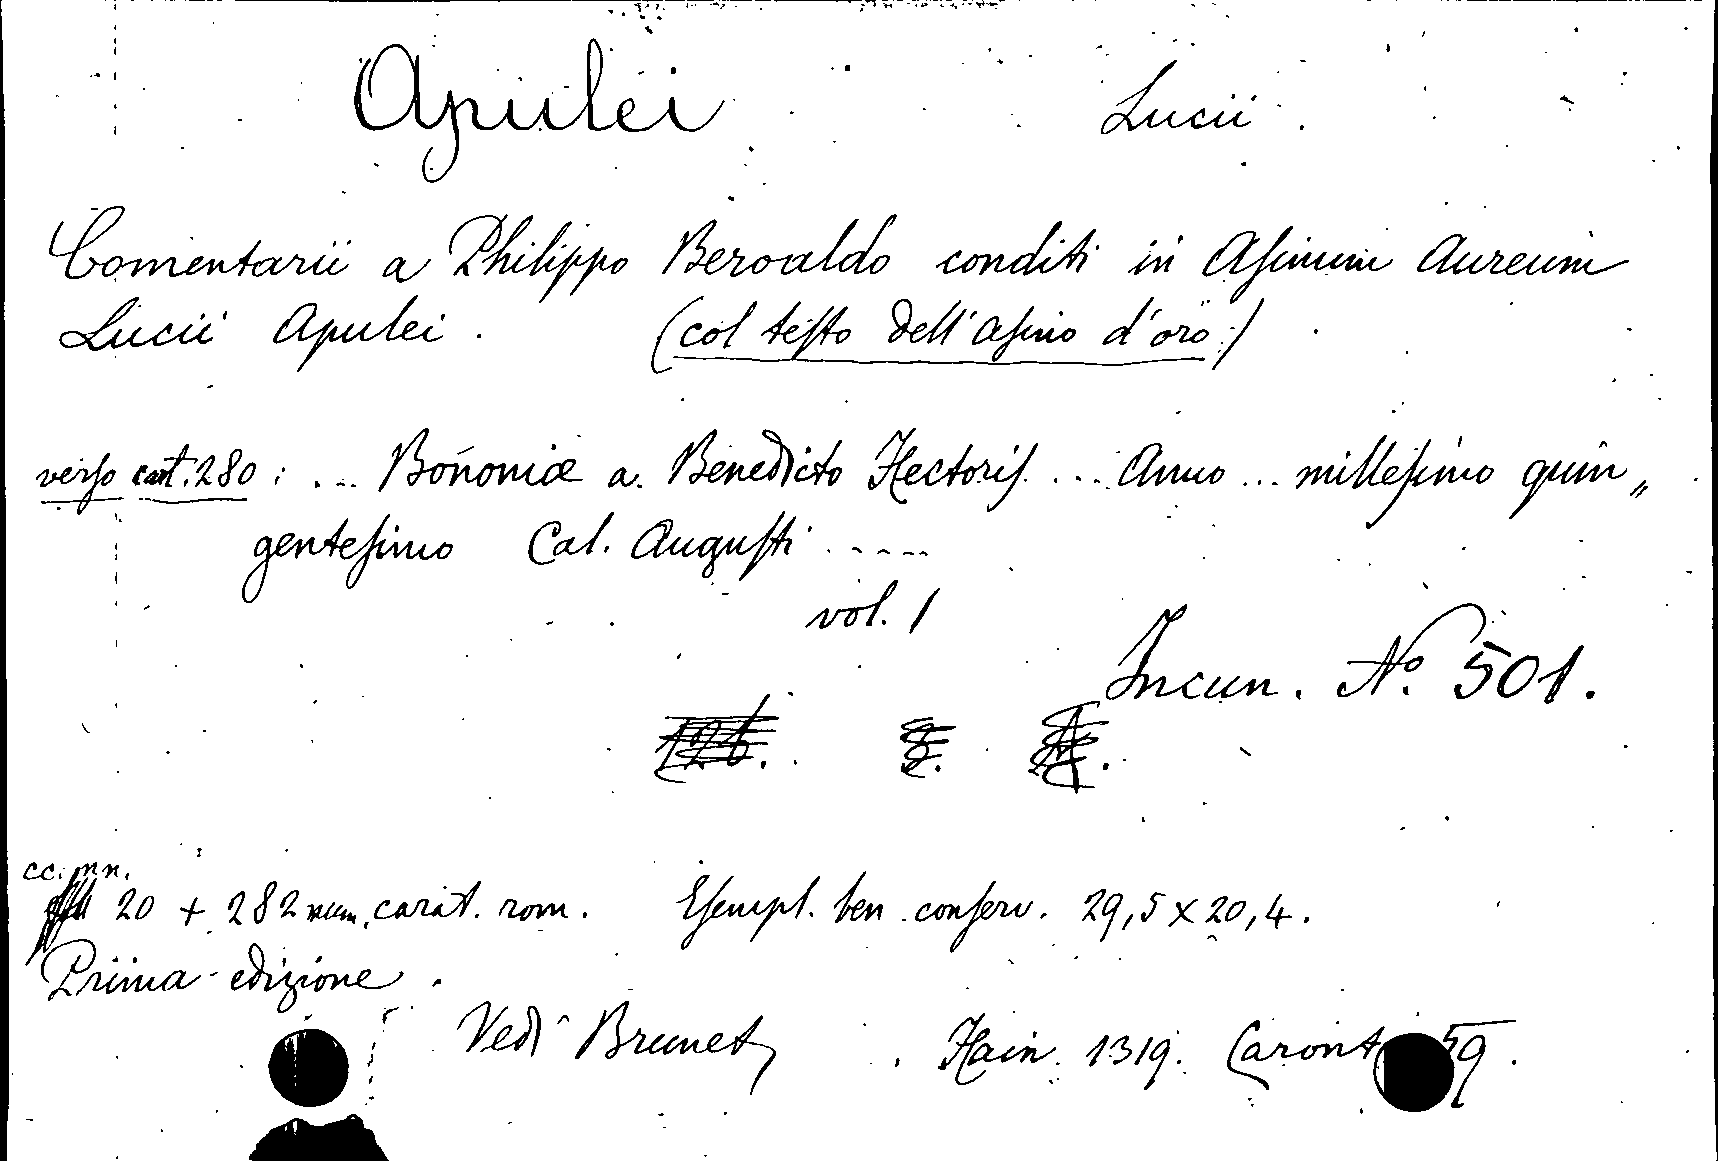 Apulei Lucii.
Comentarii a Philippo Beroaldo conditi in Asinum Aureum
Lucii Apulei. (col testo dell'asino d'oro.)
verso cart. 280: ... Bononiæ a. Benedicto Hectoris. ... Anno ... millesimo quin„
gentesimo Cal. Augusti .....
vol. 1
Incun. Nº. 501.
cc. nn.
20 + 282 num. carat. rom. Esempl. ben conserv. 29,5 x 20,4.
Prima edizione.
Vedi Brunet, Hain. 1319. Caront 59.